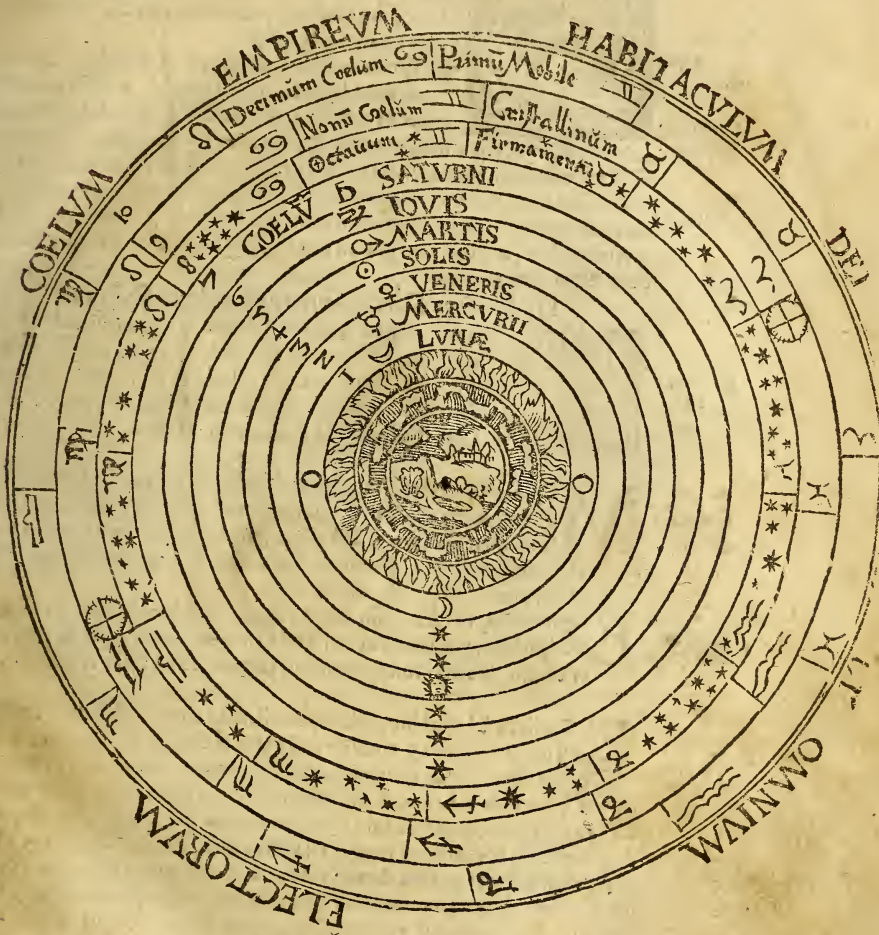 COELVM EMPIREVM HABITACVLVM DEI ET OMNIVM ELECTORVM
10 Decimum Coelum Primū Mobile
9 Nonū Coelum Cristallinum
8 Octauum Firmamentū
7 COELV̄ SATVRNI
6 IOVIS
5 MARTIS
4 SOLIS
3 VENERIS
2 MERCVRII
1 LVNÆ